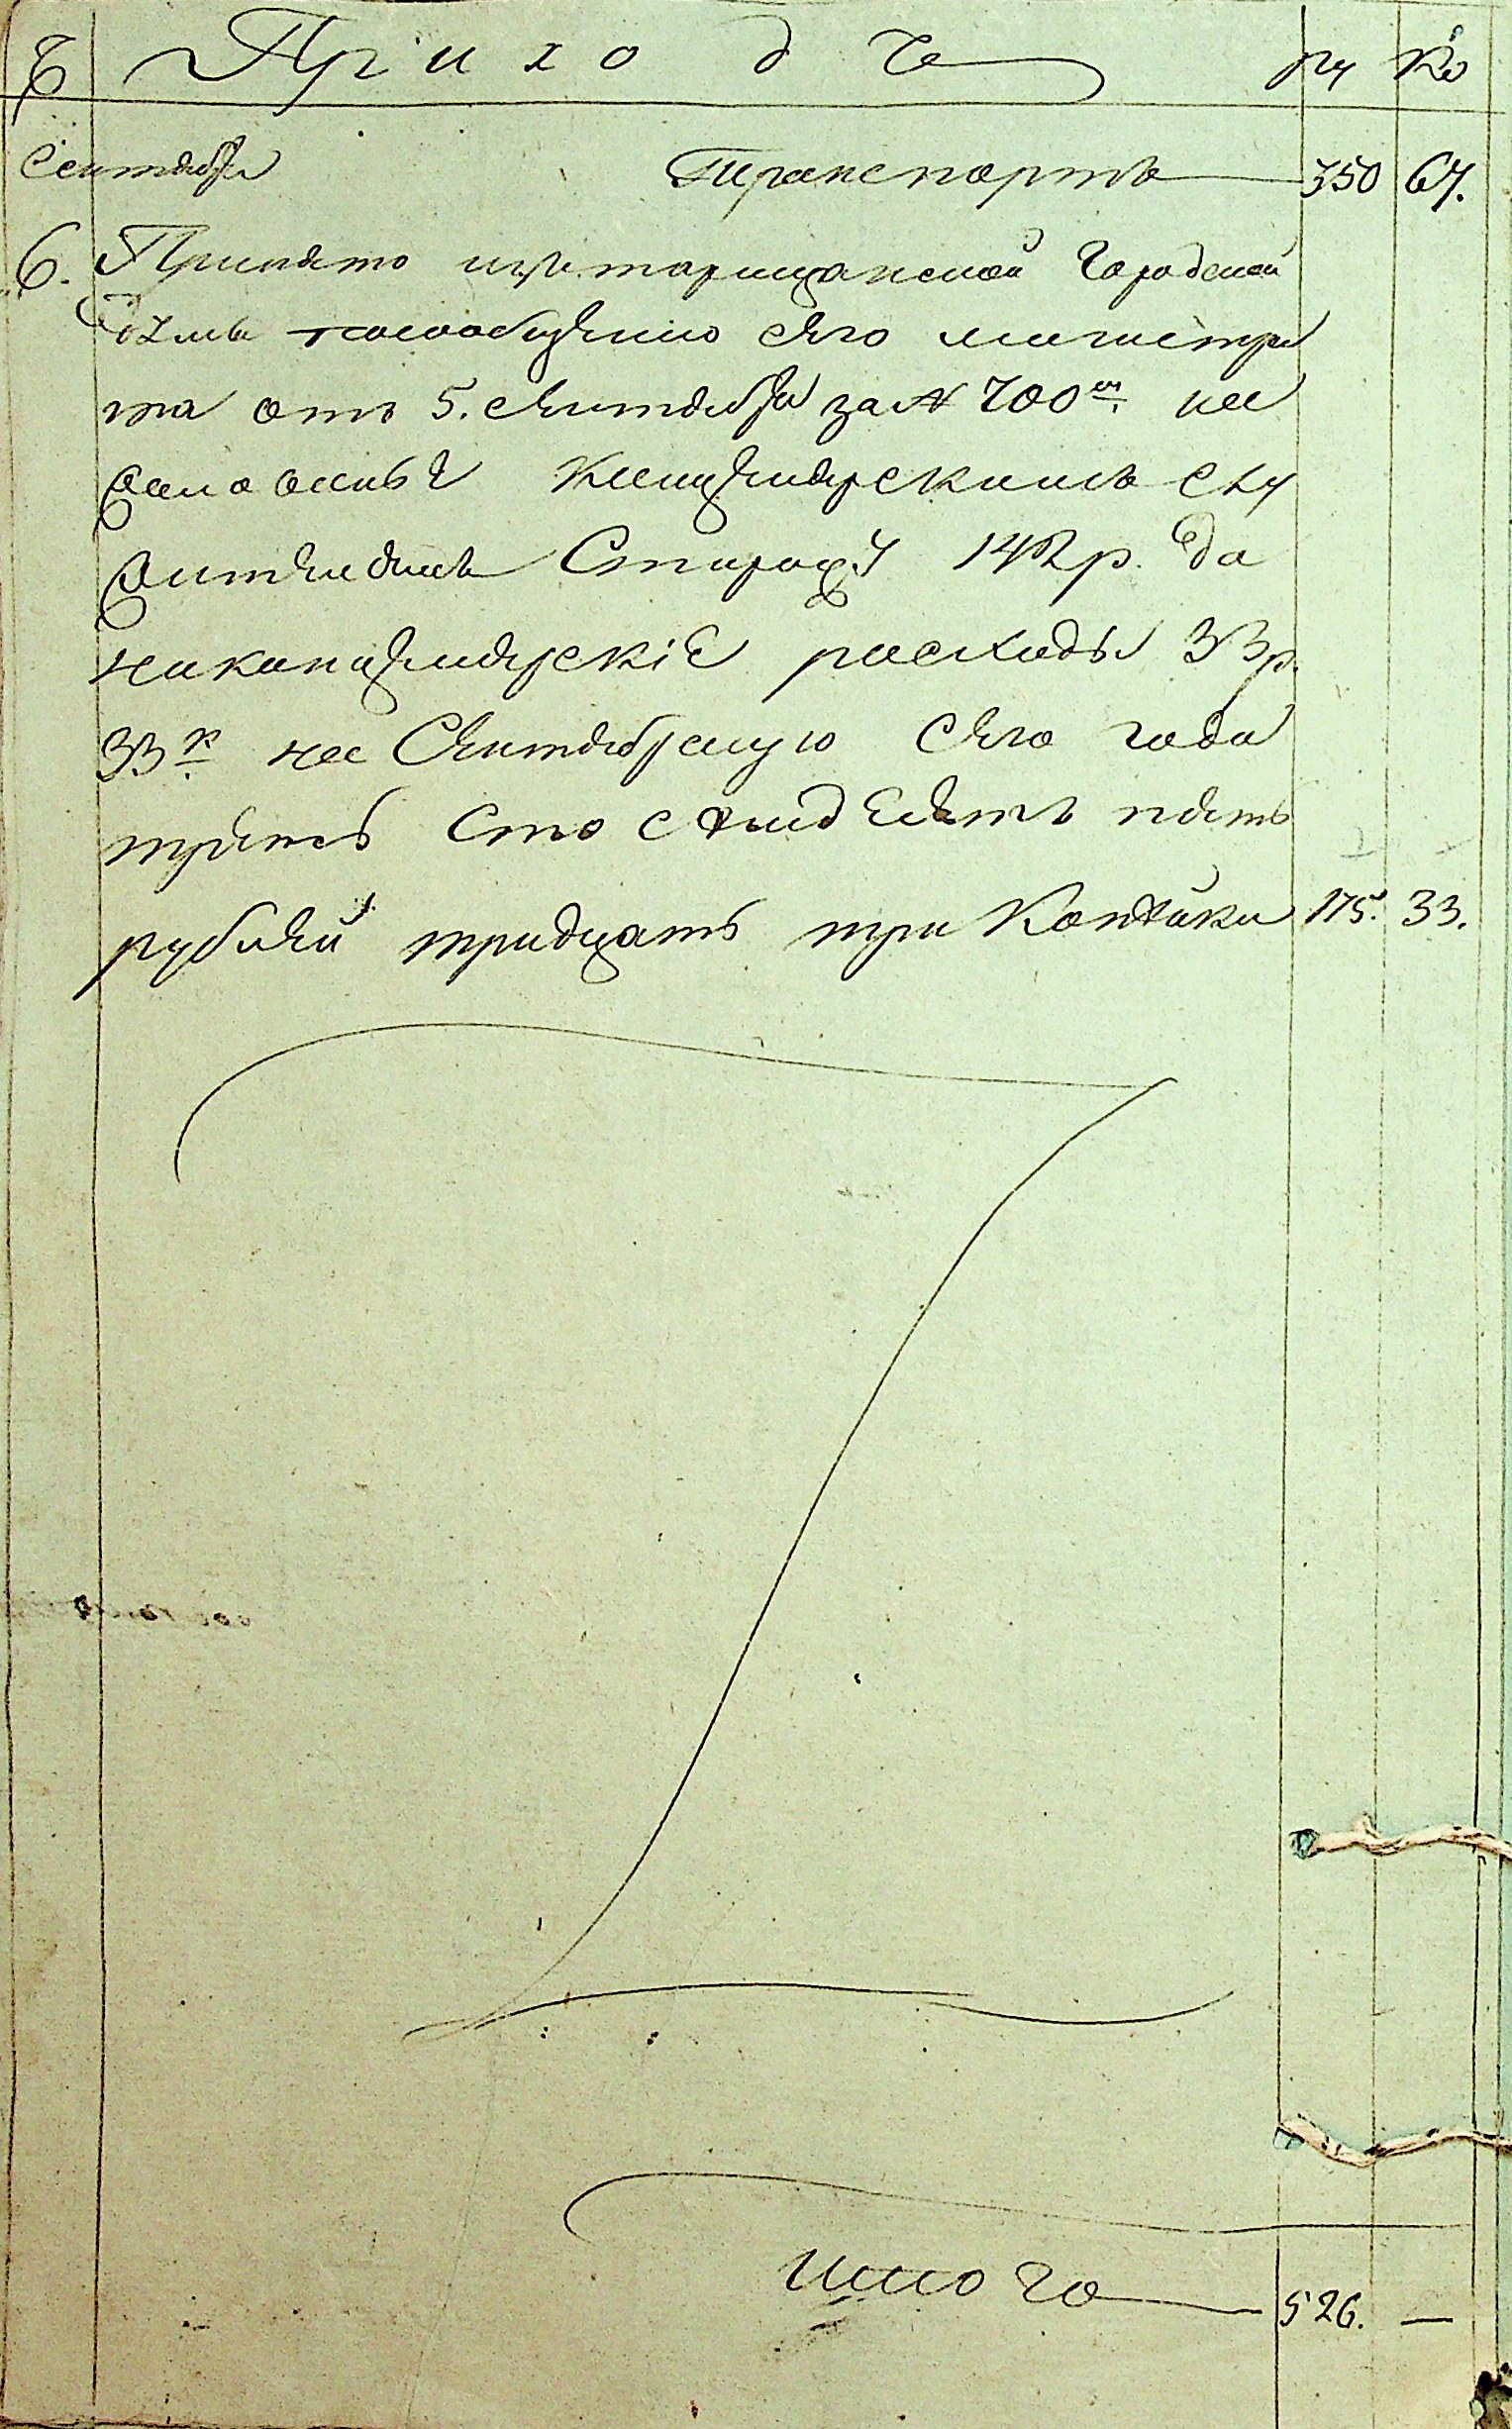 Приходъ ру ко
Сентября Транспортъ 350 67.
6. Принято изъ тарищанской Городской
Думы посообщению сего магистра
та отъ 5. сентября за № 700м на
жалованье Канцелярскимъ слу
жителямъ Старожу 142 р. да
наканцелярскіе расходы 33 р.
33 к на Сентябрскую сего года
треть Сто семдесятъ пять
рублей тридцать три Копѣйки 175. 33.
итого 526. —